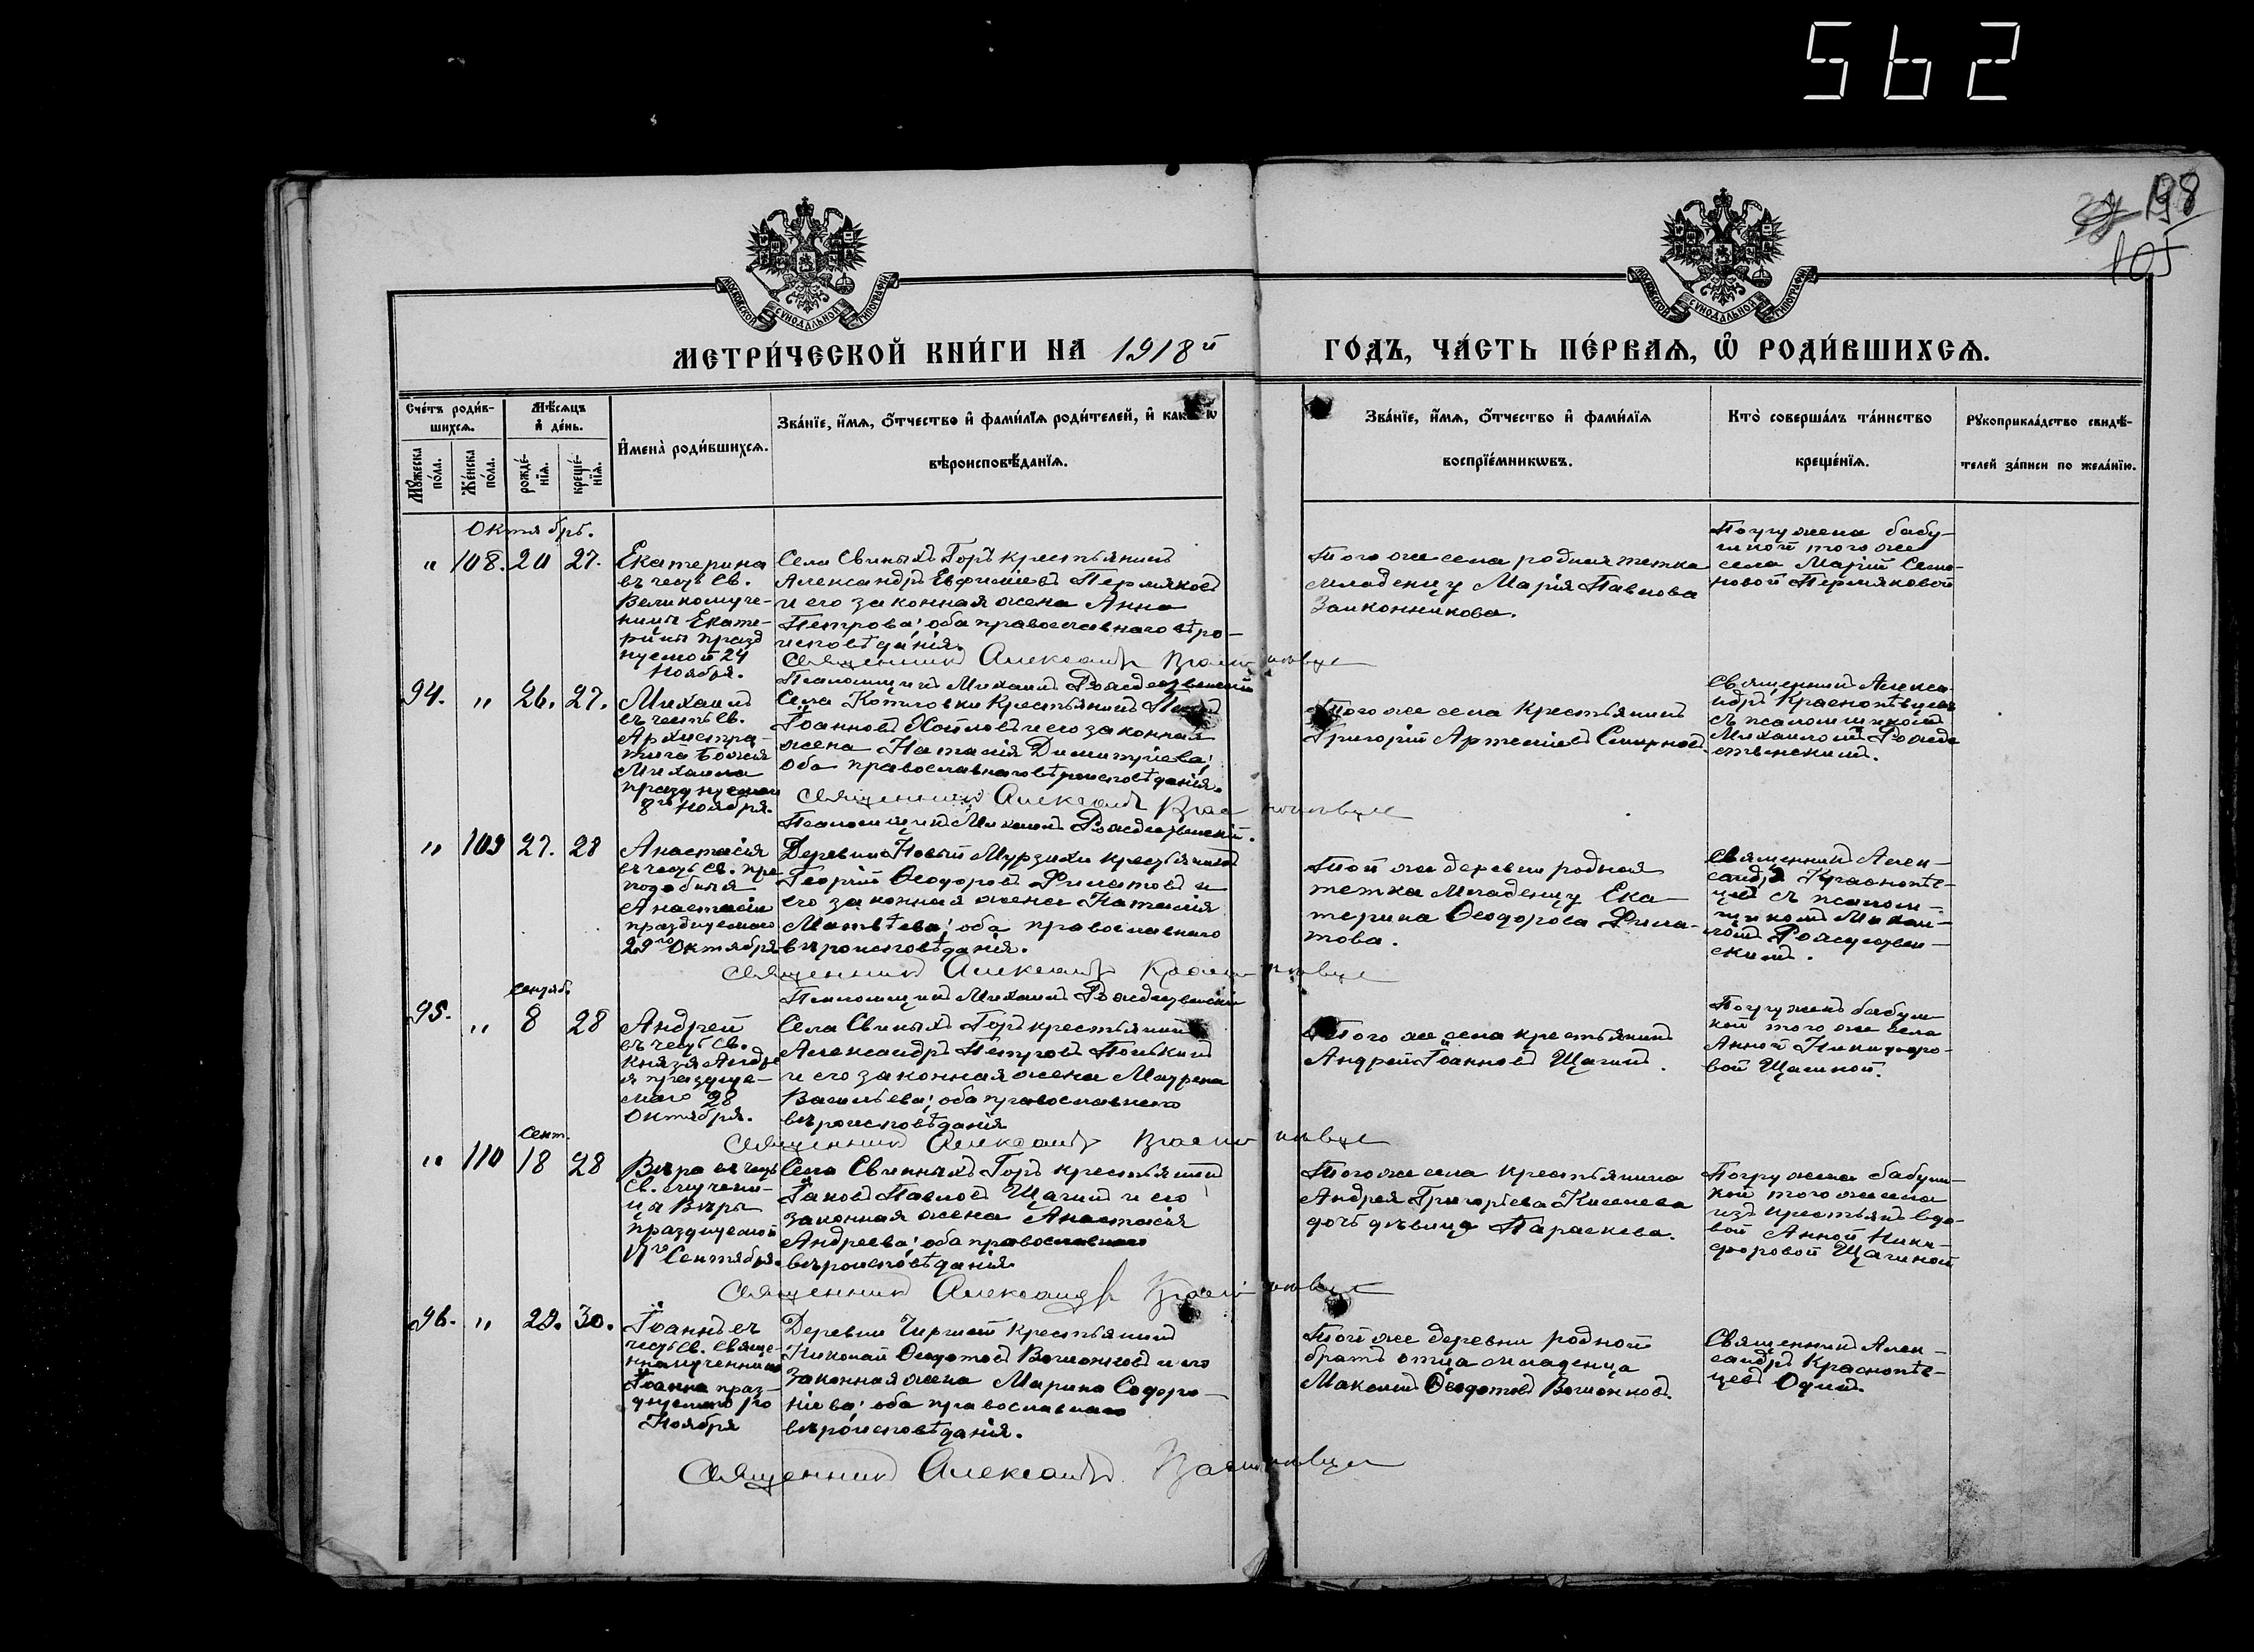 562
198
105
МОСКОВСКОЙ СѴНОДАЛЬНОЙ ТИПОГРАФІИ
МОСКОВСКОЙ СѴНОДАЛЬНОЙ ТИПОГРАФІИ
МЕТРИ́ЧЕСКОЙ КНИ́ГИ НА 1918й ГО́ДЪ, ЧА́СТЬ ПЕ́РВАѦ, Ѽ РОДИ́ВШИХСѦ.
Сче́тъ роди́в-
шихсѧ.
Мѣ́сѧцъ
и҆ де́нь.
Мꙋ́жеска по́ла.
Же́нска по́ла.
рожде́-нїѧ.
креще́-нїѧ.
И҆мена̀ роди́вшихсѧ.
Зва́нїе, и҆́мѧ, ѻ҆́тчество и҆ фами́лїѧ роди́телей, и҆
вѣроисповѣ́данїѧ.
Зва́нїе, и҆́мѧ, ѻ҆́тчество и҆ фами́лїѧ
воспрїе́мникѡвъ.
Кто̀ соверша́лъ та́инство
креще́нїѧ.
Рꙋкоприкла́дство свидѣ́-
телей за́писи по жела́нїю.
Октябрь.
" 108. 20 27.
Екатерина
въ честь Св.
Великомуче-
ницы Екате-
рины празд
нуемой 24
Ноября.
Села Свиныхъ Горъ крестьянинъ
Александръ Евфиміевъ Пермяковъ
и его законная жена Анна
Петрова; оба православнаго вѣро-
исповѣданія.
Священникъ Александръ Краснопѣвцевъ
Псаломщикъ Михаилъ Рождественскій
Того же села родная тетка
младенцу Марія Павлова
Заиконникова.
Погружена бабу-
шкой того же
села Маріей Семе-
новой Пермяковой
94. " 26. 27.
Михаилъ
въ честь Св.
Архистра-
тига Божія
Михаила
празднуемаго
8го Ноября.
Села Котловки Крестьянинъ
Іоанновъ и его законная
жена Наталія Димитріева;
оба православнаго вѣроисповѣданія.
Священникъ Александръ Краснопѣвцевъ
Псаломщикъ Михаилъ Рождественскій.
Того же села Крестьянинъ
Григорій Артеміевъ Смирновъ.
Священникъ Алекса-
ндръ Краснопѣвцевъ
съ псаломщикомъ
Михаиломъ Рожде
ственскимъ.
" 109 27. 28
Анастасія
въ честь Св. пре
подобныя
Анастасіи
празднуемаго
29го Октября
Деревни Новый Мурзихи крестьянинъ
Георгій Ѳеодоровъ Филатовъ и
его законная жена Наталія
Матвѣева; оба православнаго
вѣроисповѣданія.
Священникъ Александръ Краснопѣвцевъ
Псаломщикъ Михаилъ Рождественскій
Той же деревни родная
тетка младенцу Ека-
терина Ѳеодорова Фила-
това.
Священникъ Алек-
сандръ Краснопѣв-
цевъ съ псалом-
щикомъ Михаи-
ломъ Рождествен-
скимъ.
Сентяб.
95. " 8 28
Андрей
въ честь Св.
Князя Андре
я празднуе-
маго 28
Октября.
Села Свиныхъ Горъ крестьянинъ
Александръ Петровъ Полькинъ
и его законная жена Маурена
Васильева; оба православнаго
вѣроисповѣданія
Священникъ Александръ Краснопѣвцевъ
Того же села крестьянинъ
Андрей Іоанновъ Щагинъ.
Погруженъ бабуш-
кой того же села
Анной Никифоро-
вой Щагиной.
Сент.
" 110 18 28
Вѣра въ честь
Св. мучени-
цы Вѣры
празднуемой
17го Сентября.
Села Свиныхъ Горъ крестьянинъ
Іаковъ Павловъ Щагинъ и его
законная жена Анастасія
Андреева; оба православнаго
вѣроисповѣданія
Священникъ Александръ Краснопѣвцевъ
Того же села крестьянина
Андрея Григорьева Киселева
дочь дѣвица Параскева.
Погружена бабуш-
кой того же села
изъ крестьянъ вдо-
вой Анной Ники-
форовой Щагиной
96. " 29. 30.
Іоаннъ въ
честь Св. Свяще-
нномученника
Іоанна праз-
днуемаго
Ноября
Деревни Чиршей крестьянинъ
Николай Ѳедотовъ Волжанковъ и его
законная жена Марина Софро-
ніева; оба православнаго
вѣроисповѣданія.
Священникъ Александръ Краснопѣвцевъ
Той же деревни родной
братъ отца младенца
Максимъ Ѳеодотовъ
Священникъ Алек-
сандръ Краснопѣв-
цевъ Одинъ.